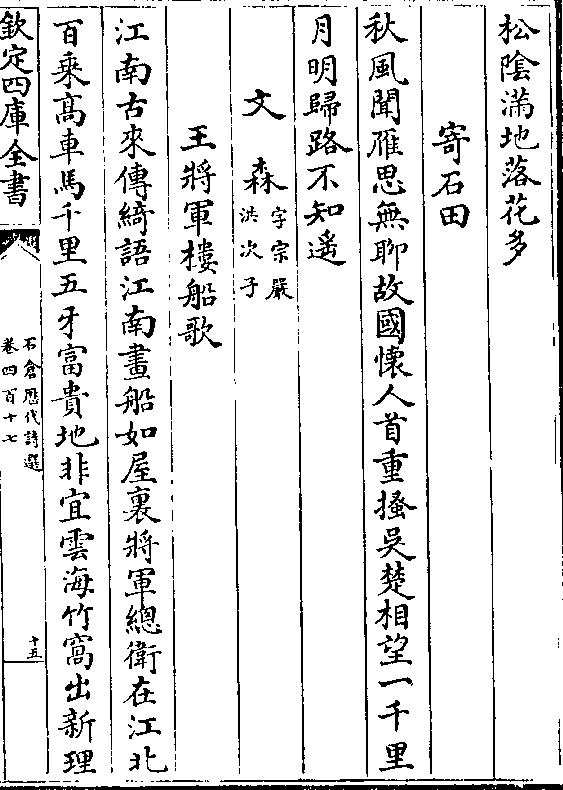 松陰滿地落花多
寄石田
秋風聞雁思無聊故國懷人首重搔吳楚相望一千里
月明歸路不知遙
文森字宗嚴
洪次子
王將軍樓船歌
江南古來傳綺語江南畫船如屋裏將軍總衛在江北
百乘髙車馬千里五牙富貴地非宜雲海竹窩出新理
欽定四庫全書
石倉歷代詩選
卷四百十七
十五